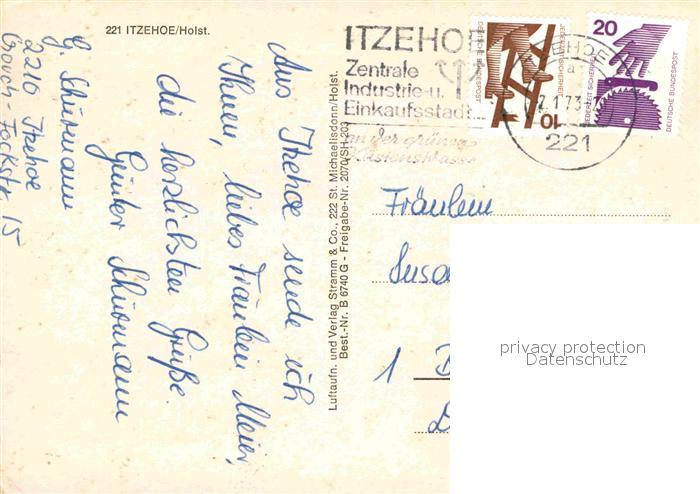 221 ITZEHOE/Holst.
Aus Itzehoe sende ich
Ihnen, liebes Fräulein Meier,
die herzlichsten Grüße.
Günter Schürmann
G. Schürmann
2210 Itzehoe
Gorch-Fockstr. 15
Luftaufn. und Verlag Stramm & Co., 222 St. Michaelisdonn/Holst.
Best.-Nr. B 6740 G - Freigabe-Nr. 2070/SH-203
ITZEHOE
Zentrale
Industrie-u.
Einkaufsstadt
an der grünen
Küstenstrasse
ITZEHOE
221
10
JEDERZEIT SICHERHEIT
DEUTSCHE BUNDESPOST
20
JEDERZEIT SICHERHEIT
DEUTSCHE BUNDESPOST
Fräulein
Susa
1
privacy protection
Datenschutz